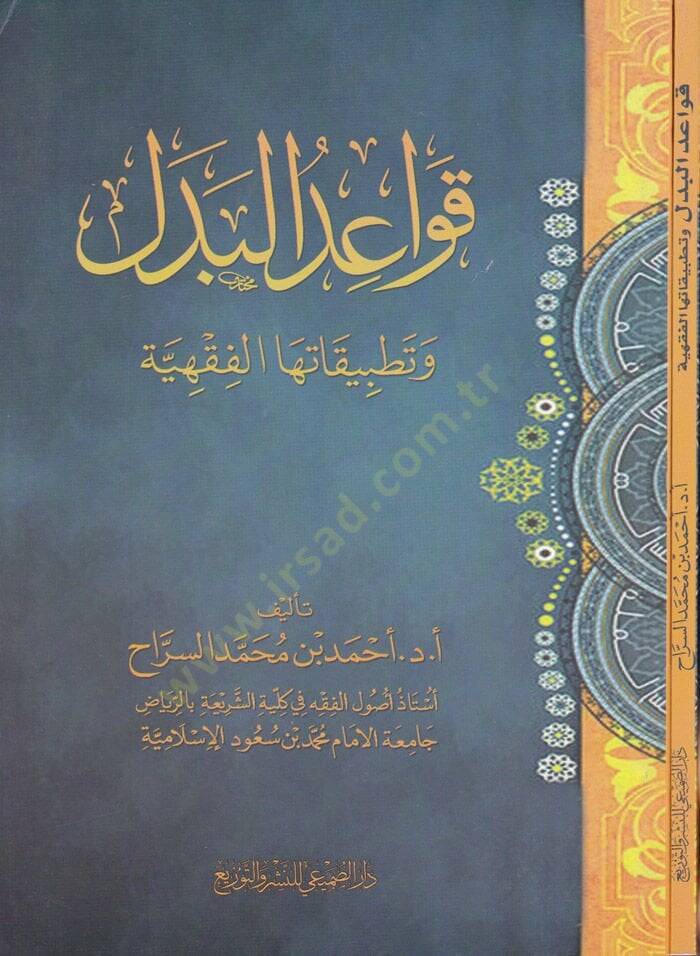 قَوَاعِدُ البَدَل
وَتَطبِيقَاتهَا الفِقْهِيَّة
تأليف
أ.د. أَحْمَد بْن مُحَمَّد السرَّاح
أُسْتَاذُ أصُول الفِقْه فِي كليَة الشَّرِيعَةِ بالرِّيَاضِ
جَامِعَة الامَام مُحمَّد بْن سُعُود الإِسْلَاميَّة
دَارُ الصُّمَيْعِيّ لِلنَّشْرِ وَالتَّوْزِيع
قواعد البدل وتطبيقاتها الفقهية
أ.د. أَحْمَد بْن مُحَمَّد السرَّاح
دَارُ الصُّمَيْعِيّ لِلنَّشْرِ وَالتَّوْزِيع
www.irsad.com.tr